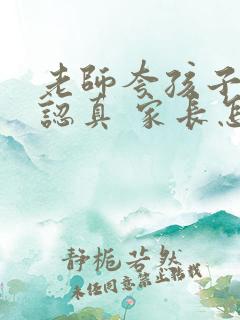 老師夸孩子
認真 家長怎
静栀若然
未经同意禁止转载